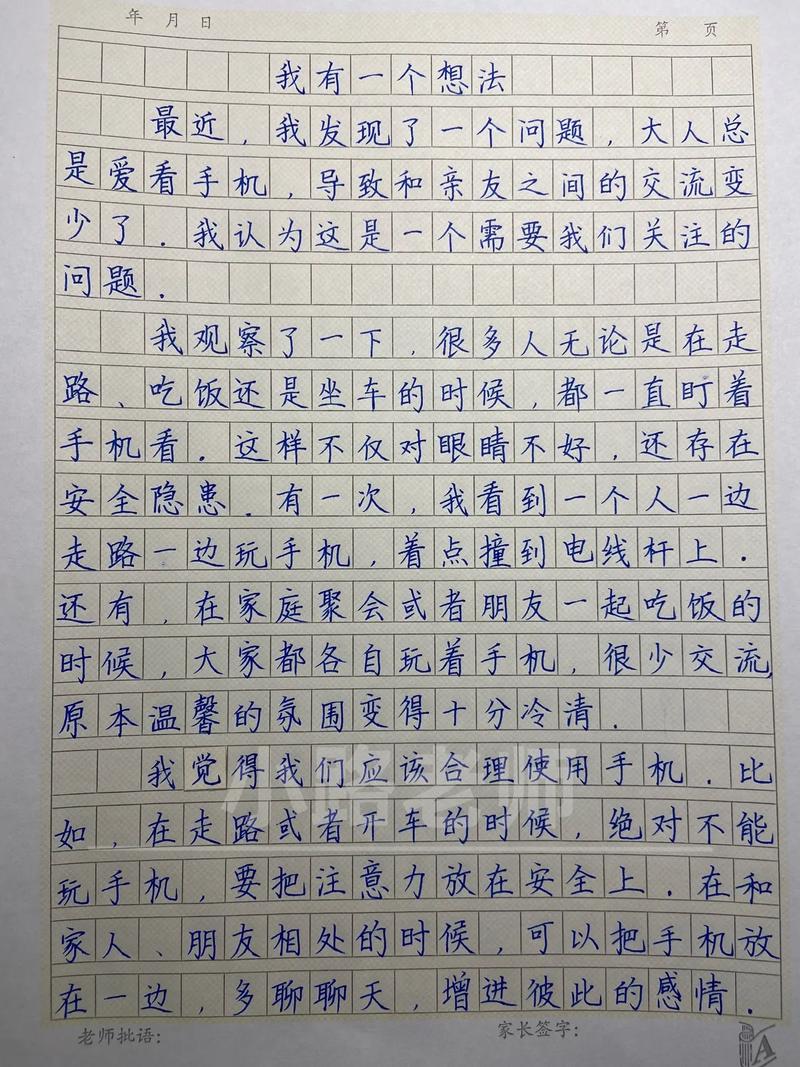 年 月 日
第 页
我有一个想法
最近，我发现了一个问题，大人总
是爱看手机，导致和亲友之间的交流变
少了．我认为这是一个需要我们关注的
问题．
我观察了一下，很多人无论是在走
路、吃饭还是坐车的时候，都一直盯着
手机看．这样不仅对眼睛不好，还存在
安全隐患．有一次，我看到一个人一边
走路一边玩手机，着点撞到电线杆上．
还有，在家庭聚会或者朋友一起吃饭的
时候，大家都各自玩着手机，很少交流，
原本温馨的氛围变得十分冷清．
我觉得我们应该合理使用手机．比
如，在走路或者开车的时候，绝对不能
玩手机，要把注意力放在安全上．在和
家人、朋友相处的时候，可以把手机放
在一边，多聊聊天，增进彼此的感情．
小路老师
老师批语：
家长签字：